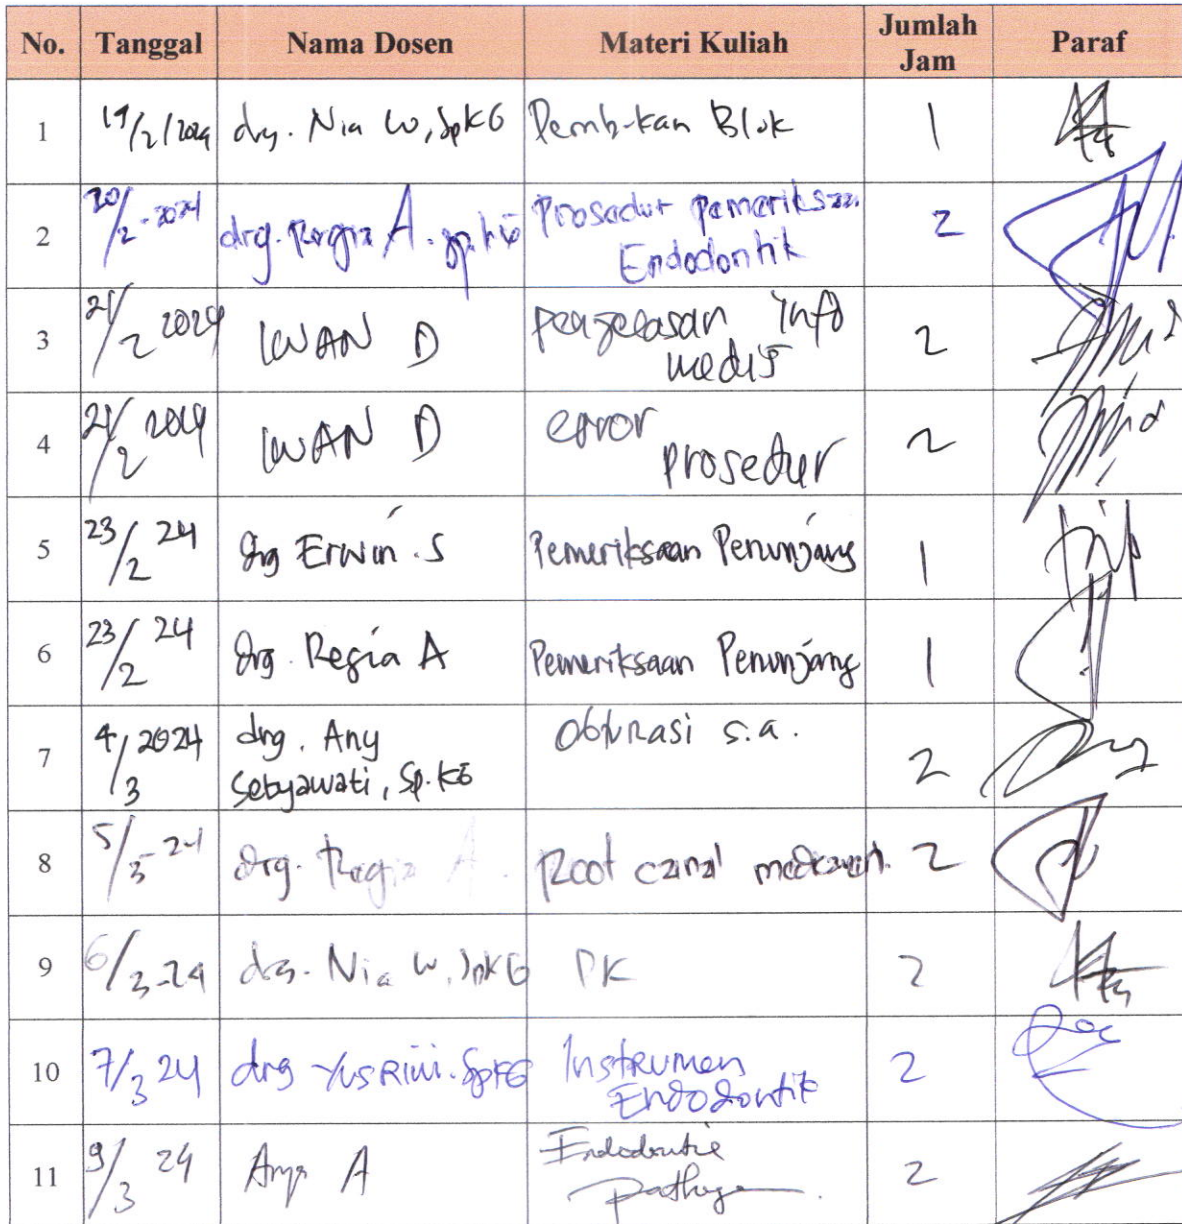 No. Tanggal Nama Dosen Materi Kuliah Jumlah Jam Paraf
1 19/2/2024 drg. Nia W, SpKG Pemb-kan Blok 1
2 20/2-2024 drg. Regia A. Sp.KG Prosedur pemeriksaan Endodontik 2
3 21/2 2024 IWAN D penjelasan info medis 2
4 21/2 2024 IWAN D error prosedur 2
5 23/2 24 drg Erwin. S Pemeriksaan Penunjang 1
6 23/2 24 drg. Regia A Pemeriksaan Penunjang 1
7 4/3 2024 drg. Any Setyawati, Sp.KG Obturasi s.a. 2
8 5/3 24 drg. Regia A. Root canal 2
9 6/3-24 drg. Nia W, SpKG PK 2
10 7/3 24 drg Yusrini. SpKG Instrumen Endodontik 2
11 9/3 24 A Endodontic 2